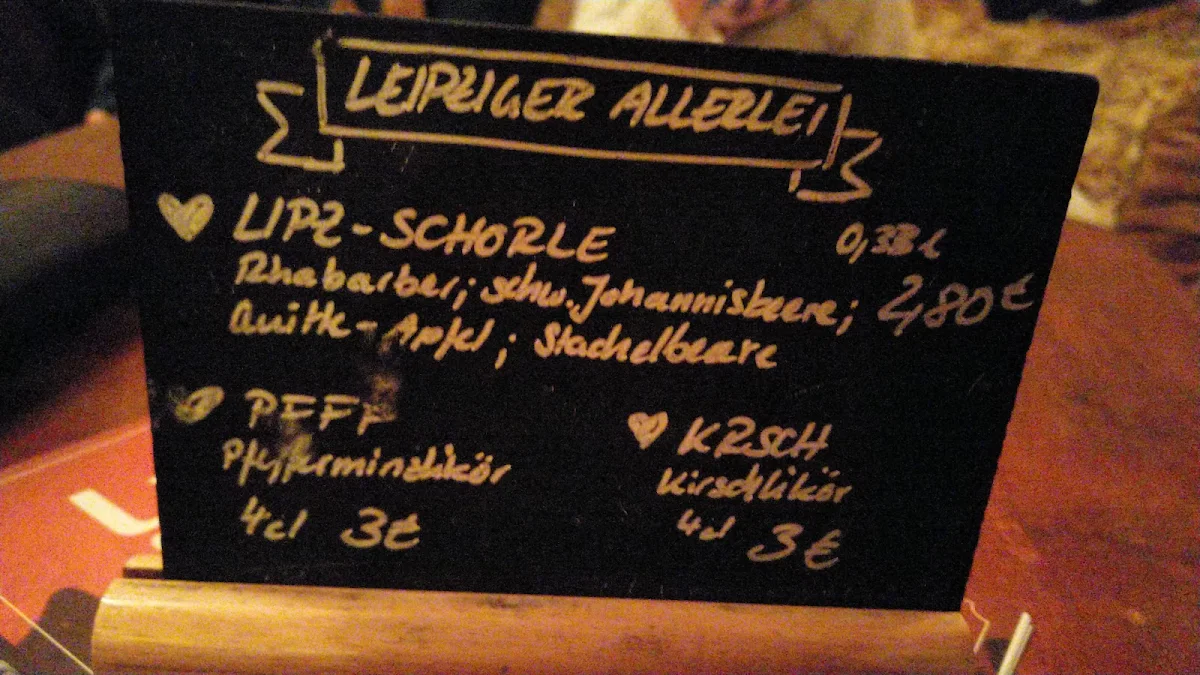 LEIPZIGER ALLERLEI
LIPZ-SCHORLE 0,33 l
Rhabarber; schw. Johannisbeere; 2,80 €
Quitte-Apfel; Stachelbeere
PFFF
Pfefferminzlikör
4cl 3€
KRSCH
Kirschlikör
4cl 3€